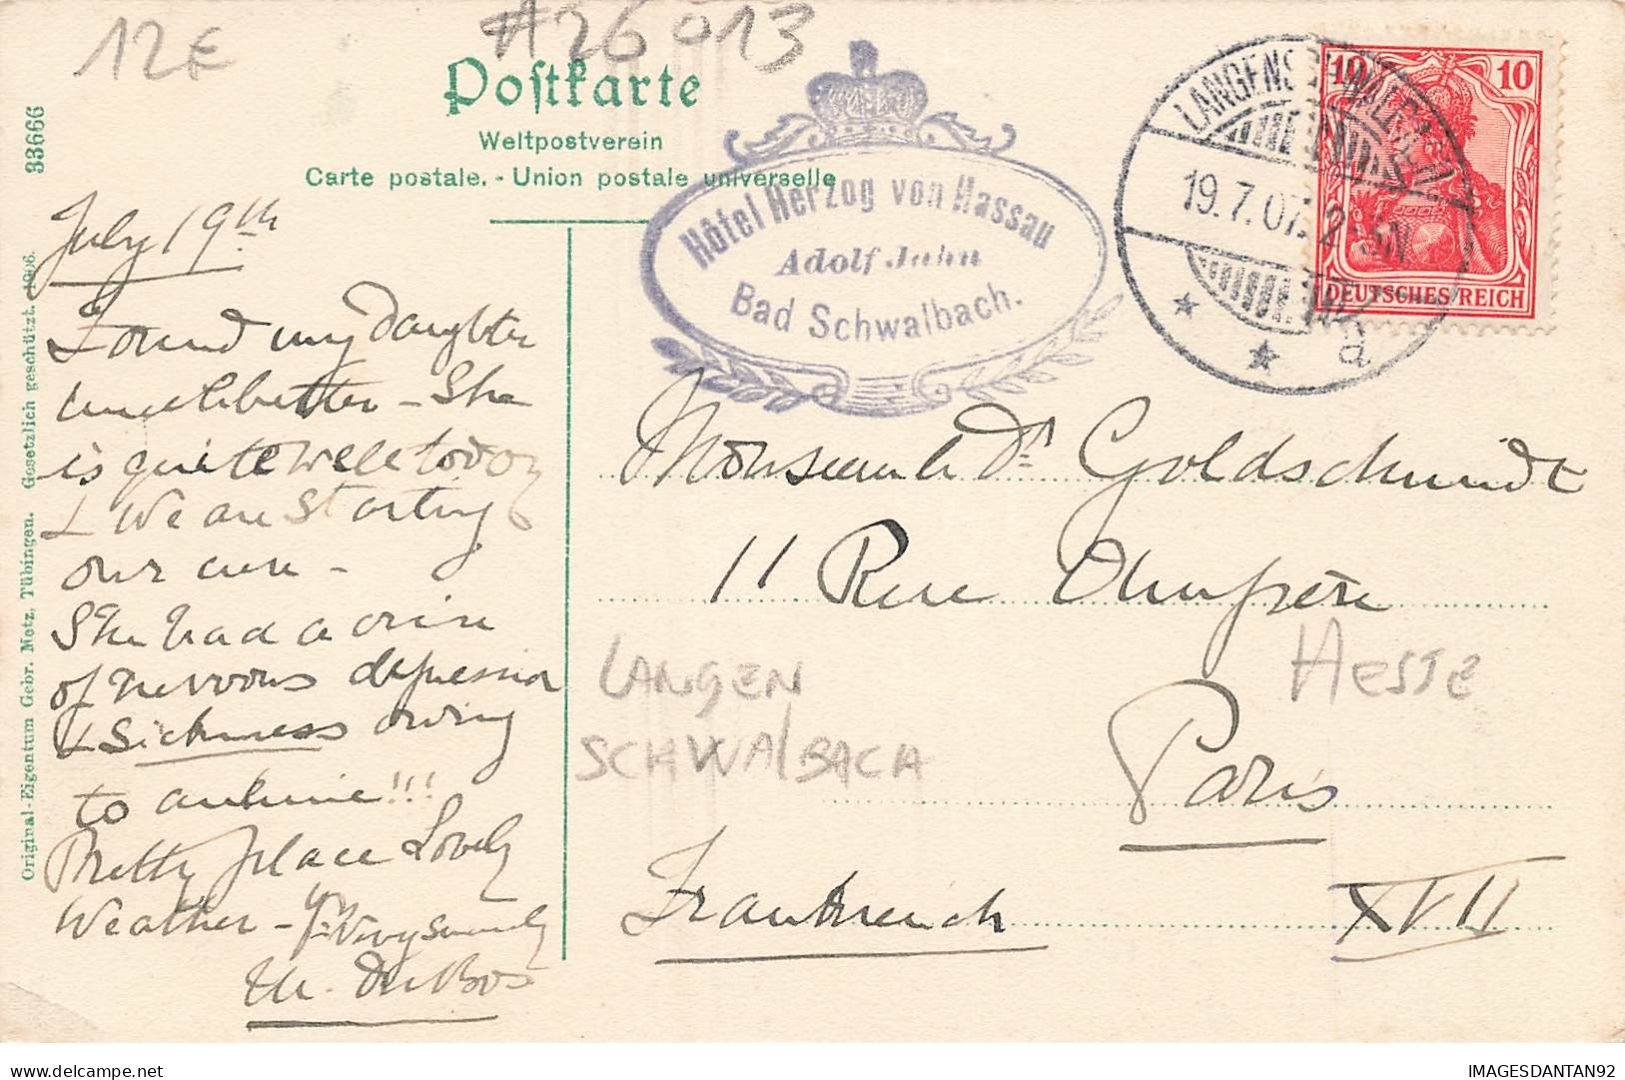 12E
#26013
Postkarte
Weltpostverein
Carte postale. - Union postale universelle
33666
Original-Eigentum Gebr. Metz, Tübingen. Gesetzlich geschützt. 1906.
Hôtel Herzog von Nassau
Adolf Jahn
Bad Schwalbach.
LANGENSCHWALBACH
19.7.07. 2-3N
a
10 10
DEUTSCHES REICH
July 19th
Found my Daughter
much better - She
is quite well today
& We are Starting
our cure -
She had a crise
of nervous depression
& Sickness owing
to
Pretty place Lovely
Weather -
DuBos
Monsieur le Dr Goldschmidt
11 Rue
Paris
Frankreich XVII
LANGEN
SCHWALBACH
HESSE
IMAGESDANTAN92